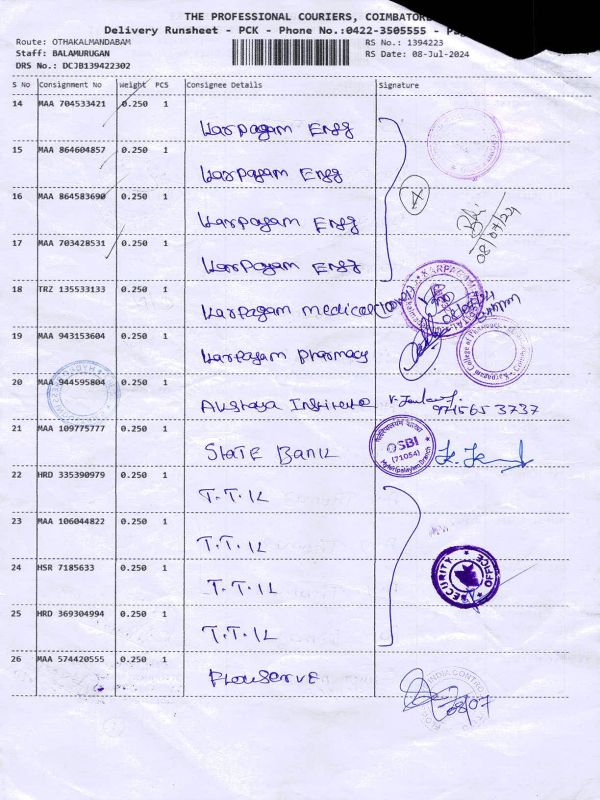 THE PROFESSIONAL COURIERS, COIMBATOR
Delivery Runsheet - PCK - Phone No.:0422-3505555 - Pa
Route: OTHAKALMANDABAM
RS No.: 1394223
Staff: BALAMURUGAN
RS Date: 08-Jul-2024
DRS No.: DCJB139422302
S No Consignment No Weight PCS Consignee Details Signature
14 MAA 704533421 0.250 1
Karpagam Engg
15 MAA 864604857 0.250 1
Karpagam Engg
16 MAA 864583690 0.250 1
4
Karpagam Engg
08/07/24
17 MAA 703428531 0.250 1
Karpagam Engg
18 TRZ 135533133 0.250 1
Karpagam medical
19 MAA 943153604 0.250 1
Karpagam pharmacy
Karpagam College of Pharmacy
20 MAA 944595804 0.250 1
Akshaya Institute
97156 53737
21 MAA 109775777 0.250 1
STATE BANK
SBI
(71054)
Myleripalayam Branch
22 HRD 335390979 0.250 1
T.T.IL
23 MAA 106044822 0.250 1
T.T.IL
24 HSR 7185633 0.250 1
T.T.IL
SECURITY OFFICE
25 HRD 369304994 0.250 1
T.T.IL
26 MAA 574420555 0.250 1
Flowserve
08/07